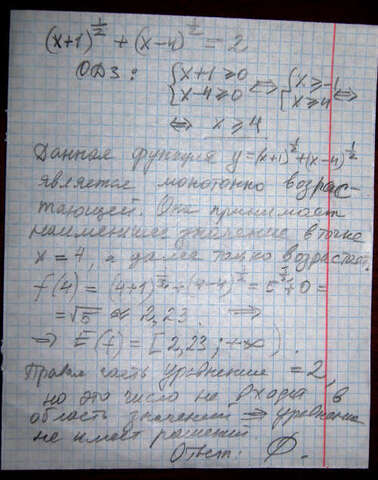 (x+1)^{1/2} + (x-4)^{1/2} = 2
ОДЗ: { x+1 ≥ 0 { x ≥ -1
{ x-4 ≥ 0 ⇔ { x ≥ 4 ⇔
⇔ x ≥ 4
Данная функция y=(x+1)^{1/2}+(x-4)^{1/2}
является монотонно возрас-
тающей. Она принимает
наименьшее значение в точке
x = 4, а далее только возрастает.
f(4) = (4+1)^{1/2}+(4-4)^{1/2} = 5^{1/2}+0 =
= √5 ≈ 2,23. ⇒
⇒ E(f) = [2,23; +∞).
Правая часть уравнения = 2,
но это число не входит в
область значений ⇒ уравнение
не имеет решений.
Ответ: Ø.